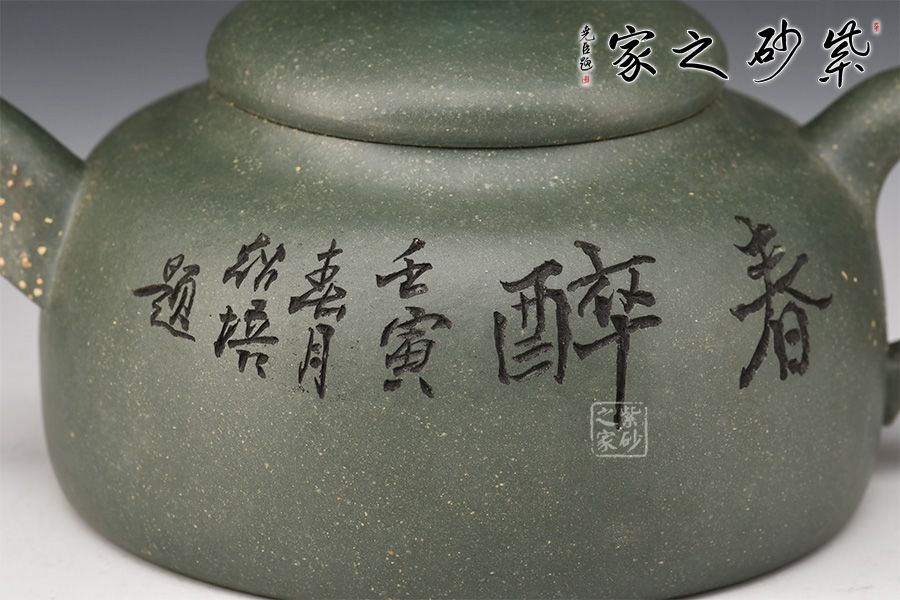 紫砂之家
尧臣题
春
醉
壬寅
春月
培
题
紫砂
之家